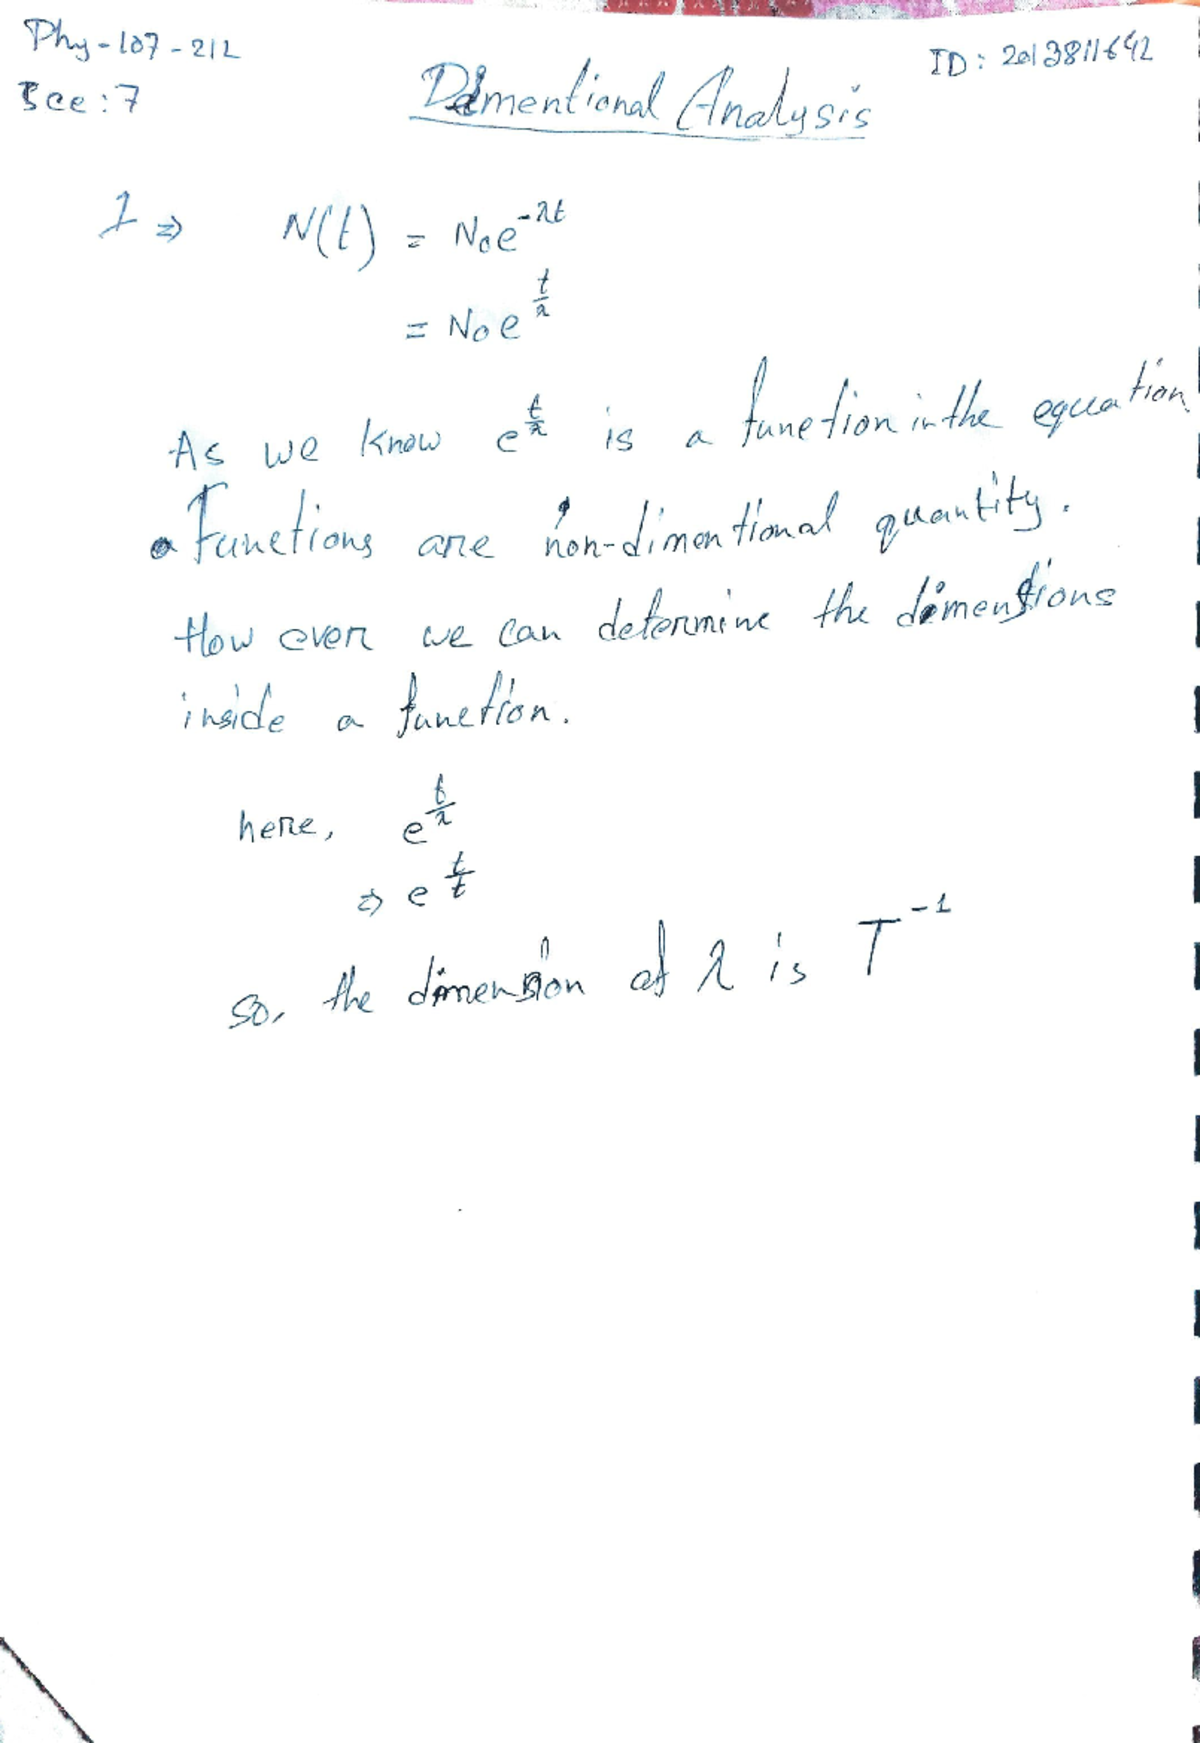 Phy-107-212
Sec: 7
ID: 2013811642
Dimentional Analysis
1 ⇒ N(t) = N₀e^{-λt}
= N₀e^{t/λ}
As we know e^{t/λ} is a function in the equation
Functions are non-dimentional quantity.
How ever we can determine the dimensions
inside a function.
here, e^{t/λ}
⇒ e^{t/t}
so, the dimension of λ is T^{-1}